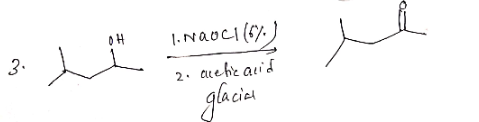 3.
OH
1. NaOCl (6%)
2. acetic acid
glacial
O